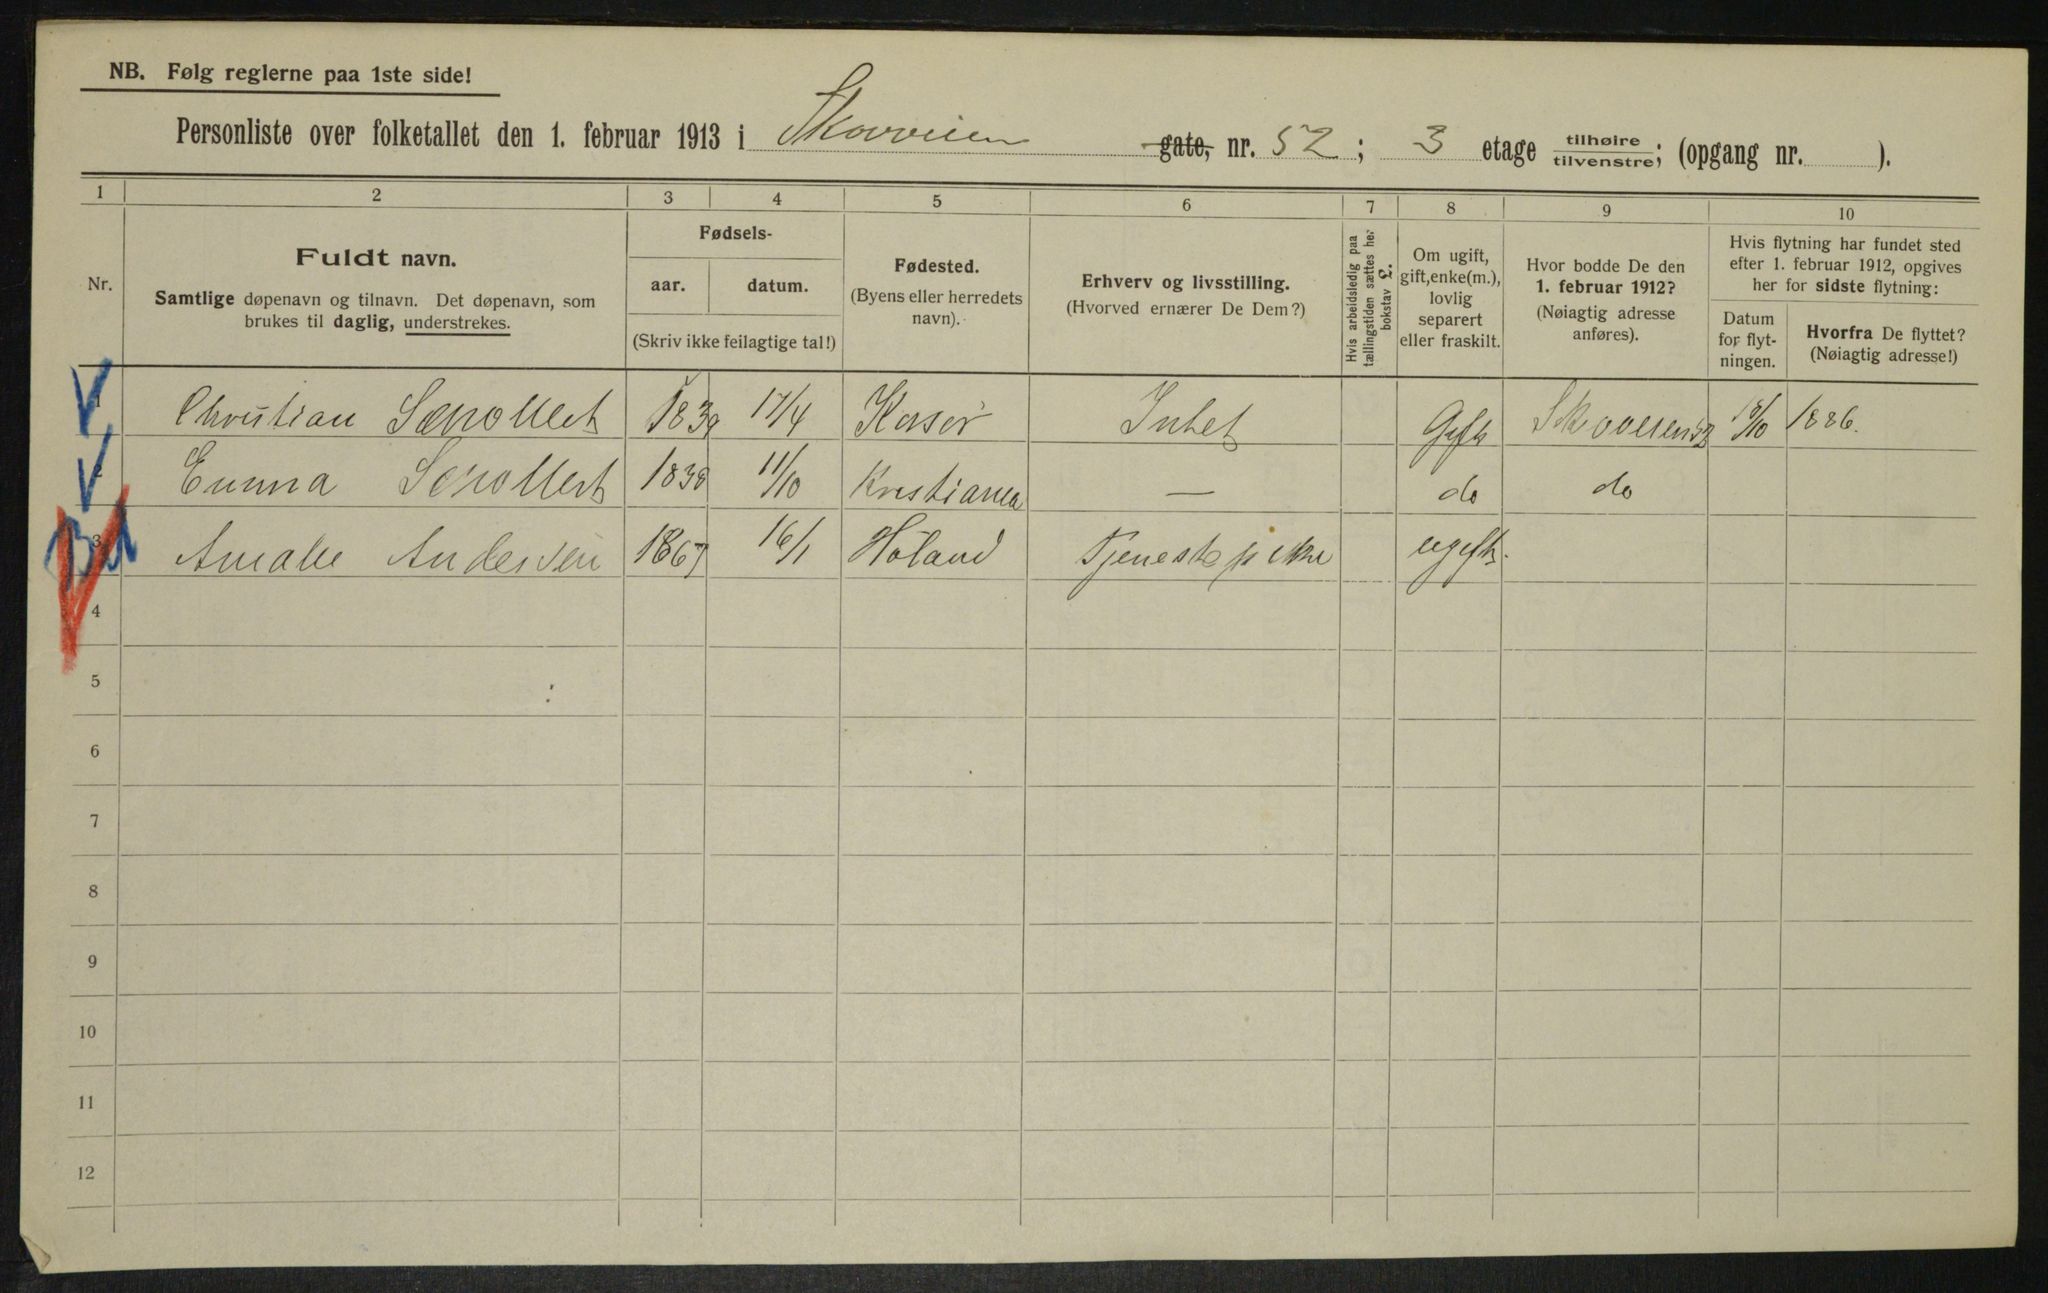 NB. Følg reglerne paa 1ste side!
Personliste over folketallet den 1. februar 1913 i Skovveien gate, nr. 52; 3 etage tilhøire/tilvenstre; (opgang nr. ).
1 2 3 4 5 6 7 8 9 10
Nr.
Fuldt navn.
Samtlige døpenavn og tilnavn. Det døpenavn, som
brukes til daglig, understrekes.
Fødsels-
aar. datum.
(Skriv ikke feilagtige tal!)
Fødested.
(Byens eller herredets
navn).
Erhverv og livsstilling.
(Hvorved ernærer De Dem?)
Hvis arbeidsledig paa
tællingstiden sættes her
bokstav L.
Om ugift,
gift, enke(m.),
lovlig
separert
eller fraskilt.
Hvor bodde De den
1. februar 1912?
(Nøiagtig adresse
anføres).
Hvis flytning har fundet sted
efter 1. februar 1912, opgives
her for sidste flytning:
Datum
for flyt-
ningen.
Hvorfra De flyttet?
(Nøiagtig adresse!)
1 Christian 1839 17/4 Korsør Intet Gift Skovveien 52 1886.
2 Emma 1839 11/10 Kristiania — do do
3 Amalie Andersen 1867 16/1 Høland Tjenestepike ugift.
4
5
6
7
8
9
10
11
12